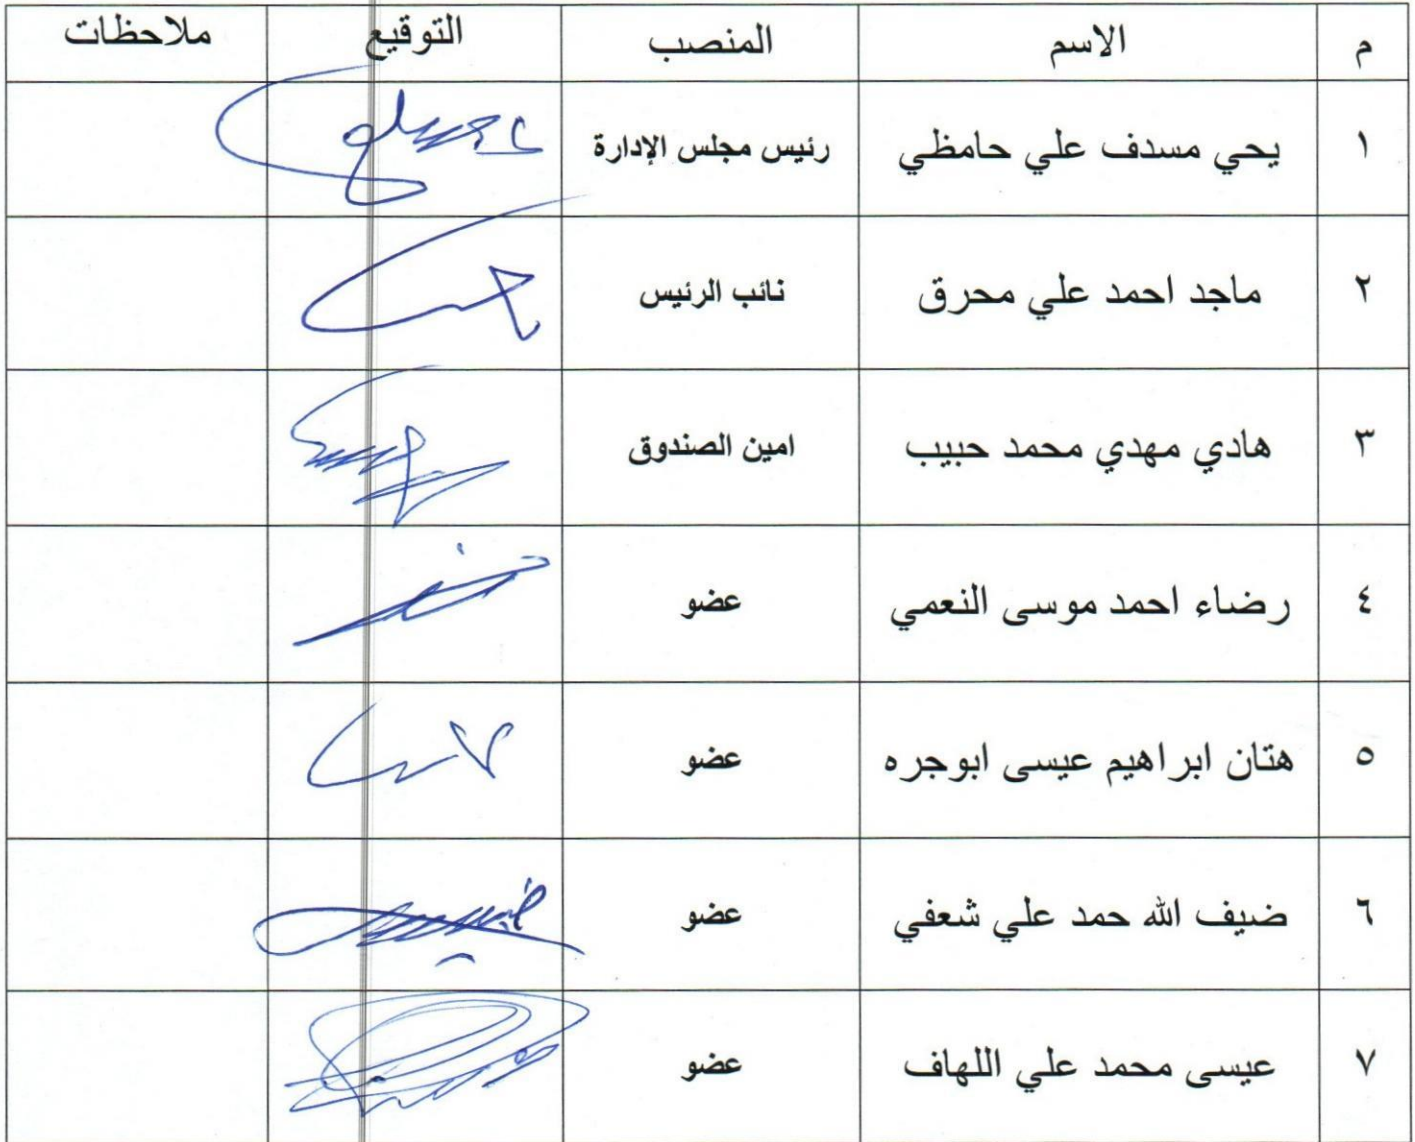 م الاسم المنصب التوقيع ملاحظات
١ يحي مسدف علي حامظي رئيس مجلس الإدارة
٢ ماجد احمد علي محرق نائب الرئيس
٣ هادي مهدي محمد حبيب امين الصندوق
٤ رضاء احمد موسى النعمي عضو
٥ هتان ابراهيم عيسى ابوجره عضو
٦ ضيف الله حمد علي شعفي عضو
٧ عيسى محمد علي اللهاف عضو